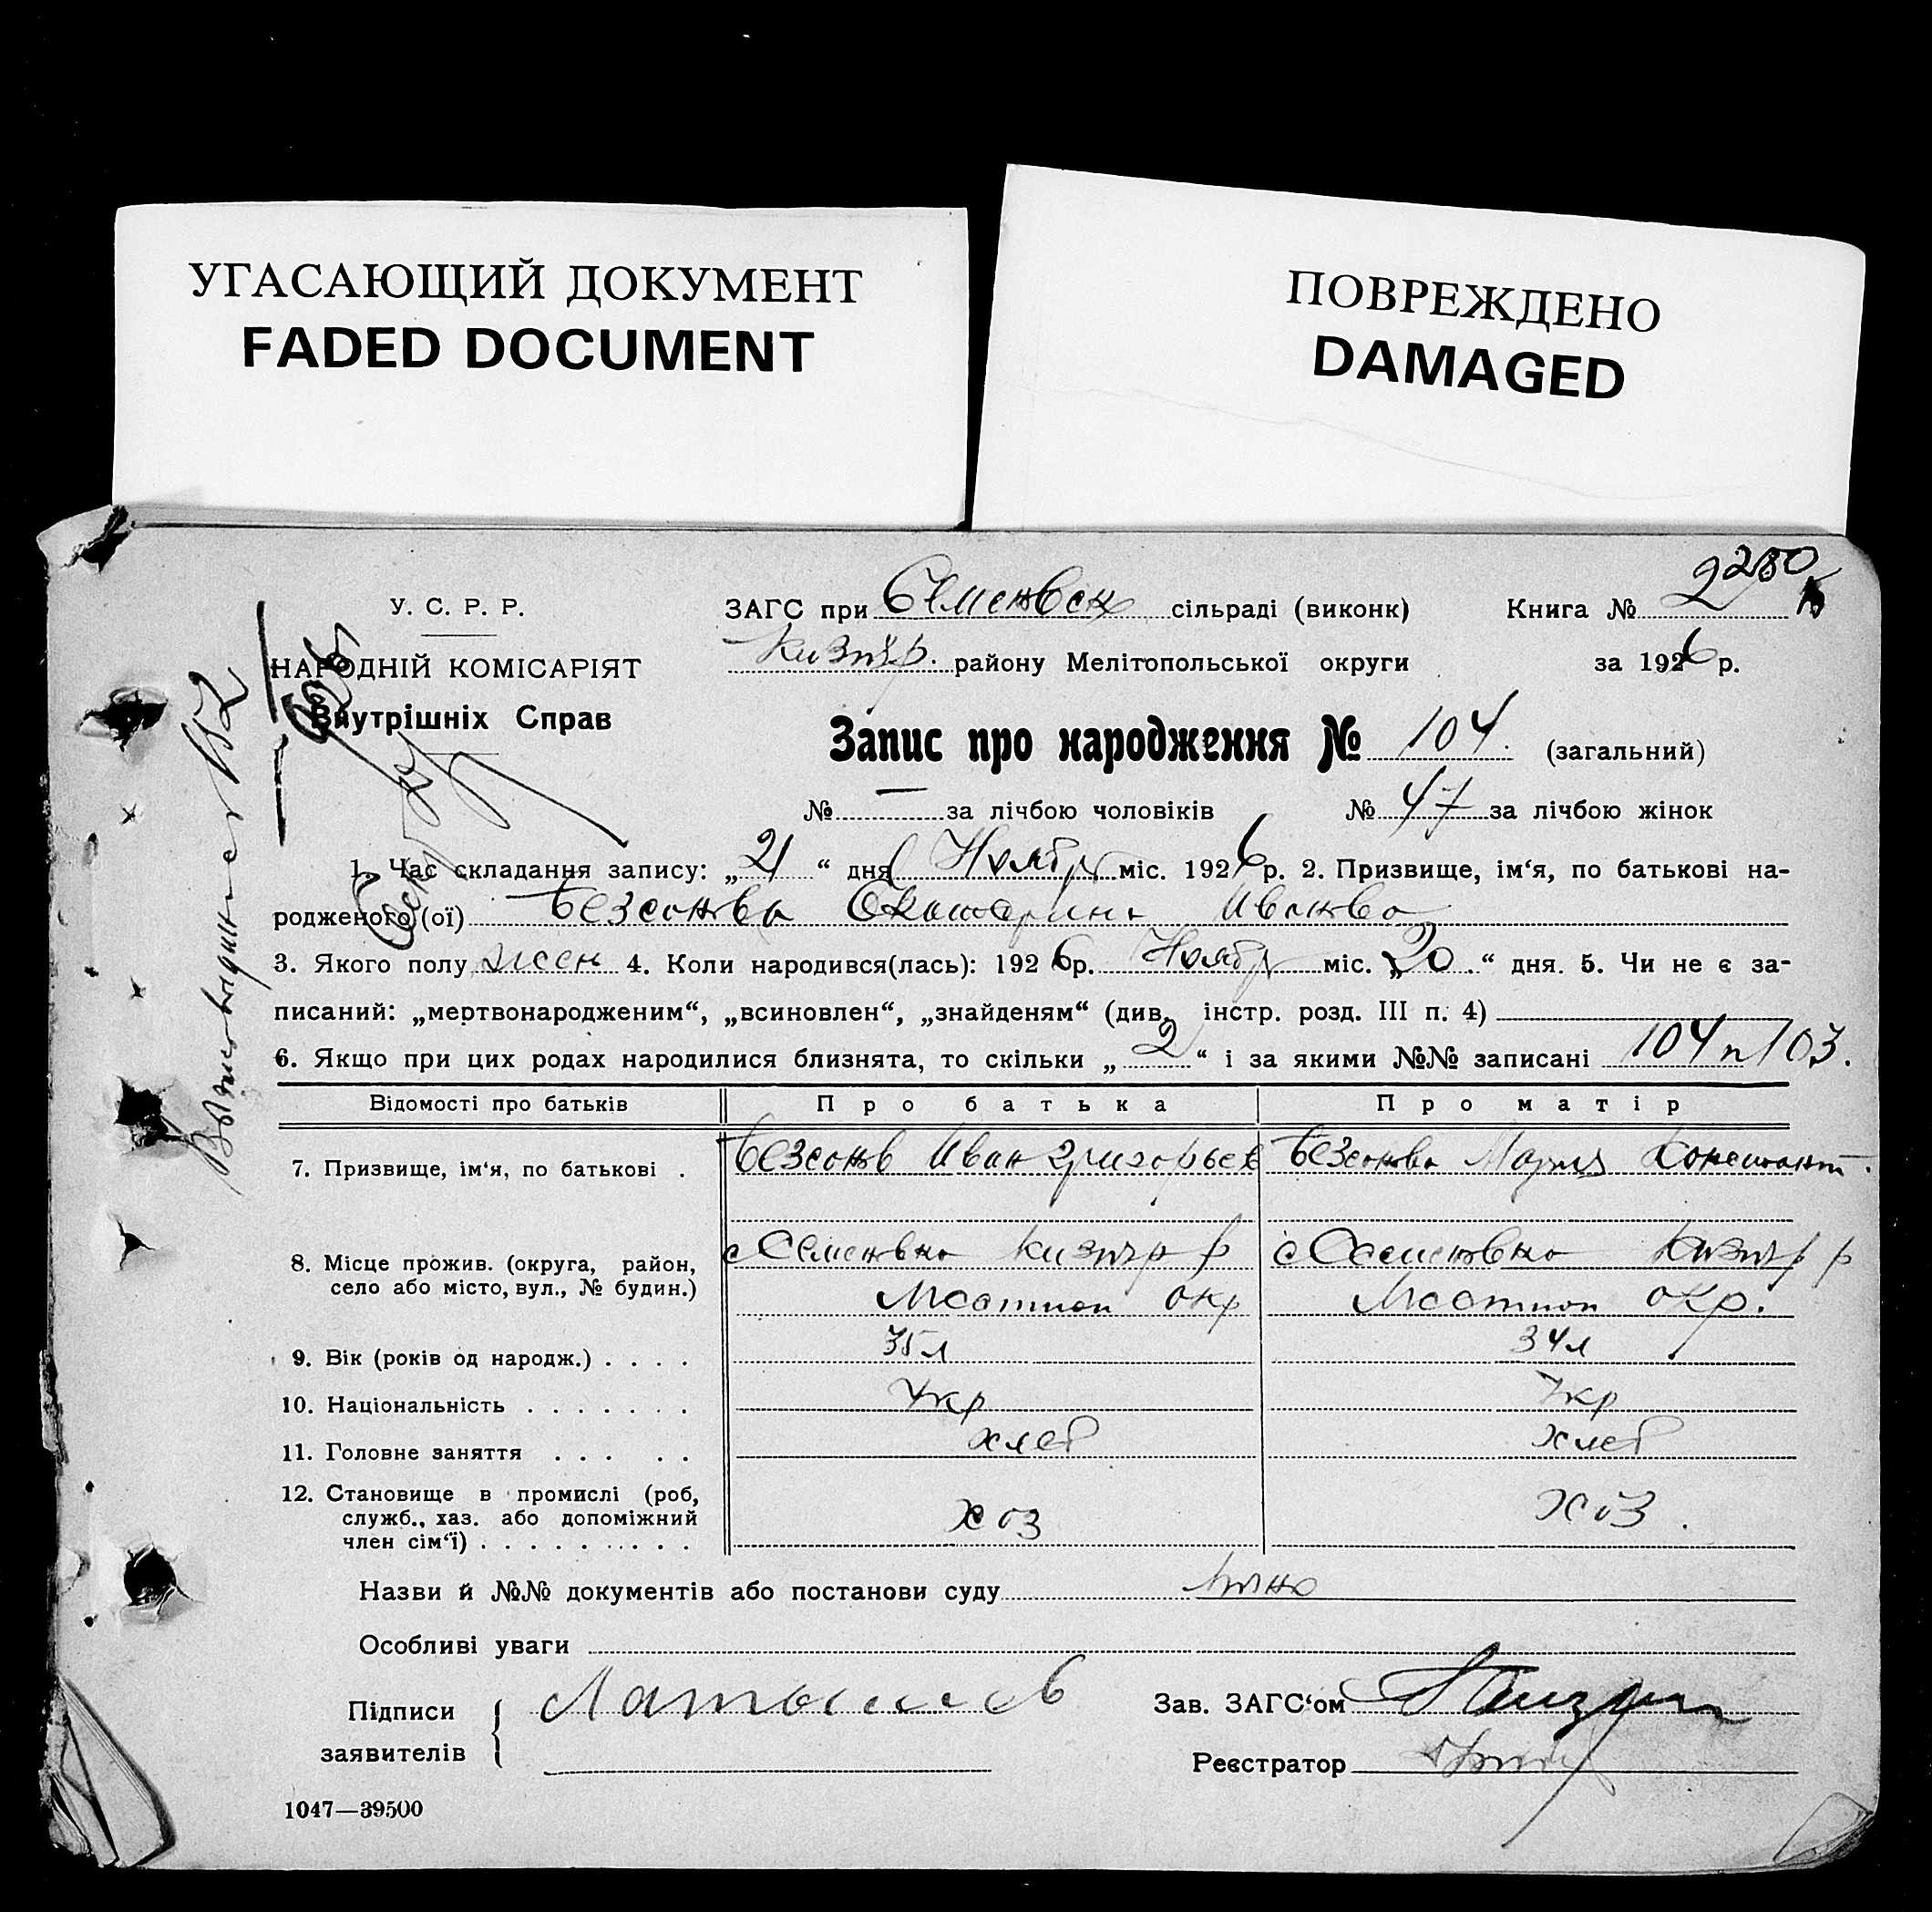 УГАСАЮЩИЙ ДОКУМЕНТ
FADED DOCUMENT
ПОВРЕЖДЕНО
DAMAGED
У. С. Р. Р.
НАРОДНІЙ КОМІСАРІЯТ
Внутрішніх Справ
ЗАГС при Семеновск сільраді (виконк) Книга №
Кизияр. району Мелітопольської округи за 1926 р.
Запис про народження № 104. (загальний)
№ — за лічбою чоловіків № 47 за лічбою жінок
1. Час складання запису: „21“ дня Ноябр міс. 1926 р. 2. Призвище, ім‘я, по батькові на-
родженого (ої) Безсонова Екатерина Иванова
3. Якого полу жен 4. Коли народився(лась): 1926 р. Ноябр міс. „20.“ дня. 5. Чи не є за-
писаний: „мертвонародженим“, „всиновлен“, „знайденям“ (див. інстр. розд. III п. 4)
6. Якщо при цих родах народилися близнята, то скільки „2“ і за якими №№ записані 104 и 103.
Відомості про батьків Про батька Про матір
7. Призвище, ім‘я, по батькові . Безсонов Иван Григорьев Безсонова Мария Констант.
8. Місце прожив. (округа, район,
село або місто, вул., № будин.)
с Семеновка Кизияр р с Семеновка Кизияр р
Мелитоп окр Мелитоп окр.
9. Вік (років од народж.) . . . . 35 л 34 л
10. Національність . . . . . . . Укр Укр
11. Головне заняття . . . . . хлеб хлеб
12. Становище в промислі (роб,
служб., хаз. або допоміжний
член сім‘ї) . . . . . . . . . .
хоз хоз.
Назви й №№ документів або постанови суду
Особливі уваги
Підписи
заявителів
Зав. ЗАГС‘ом
Реєстратор
1047—39500